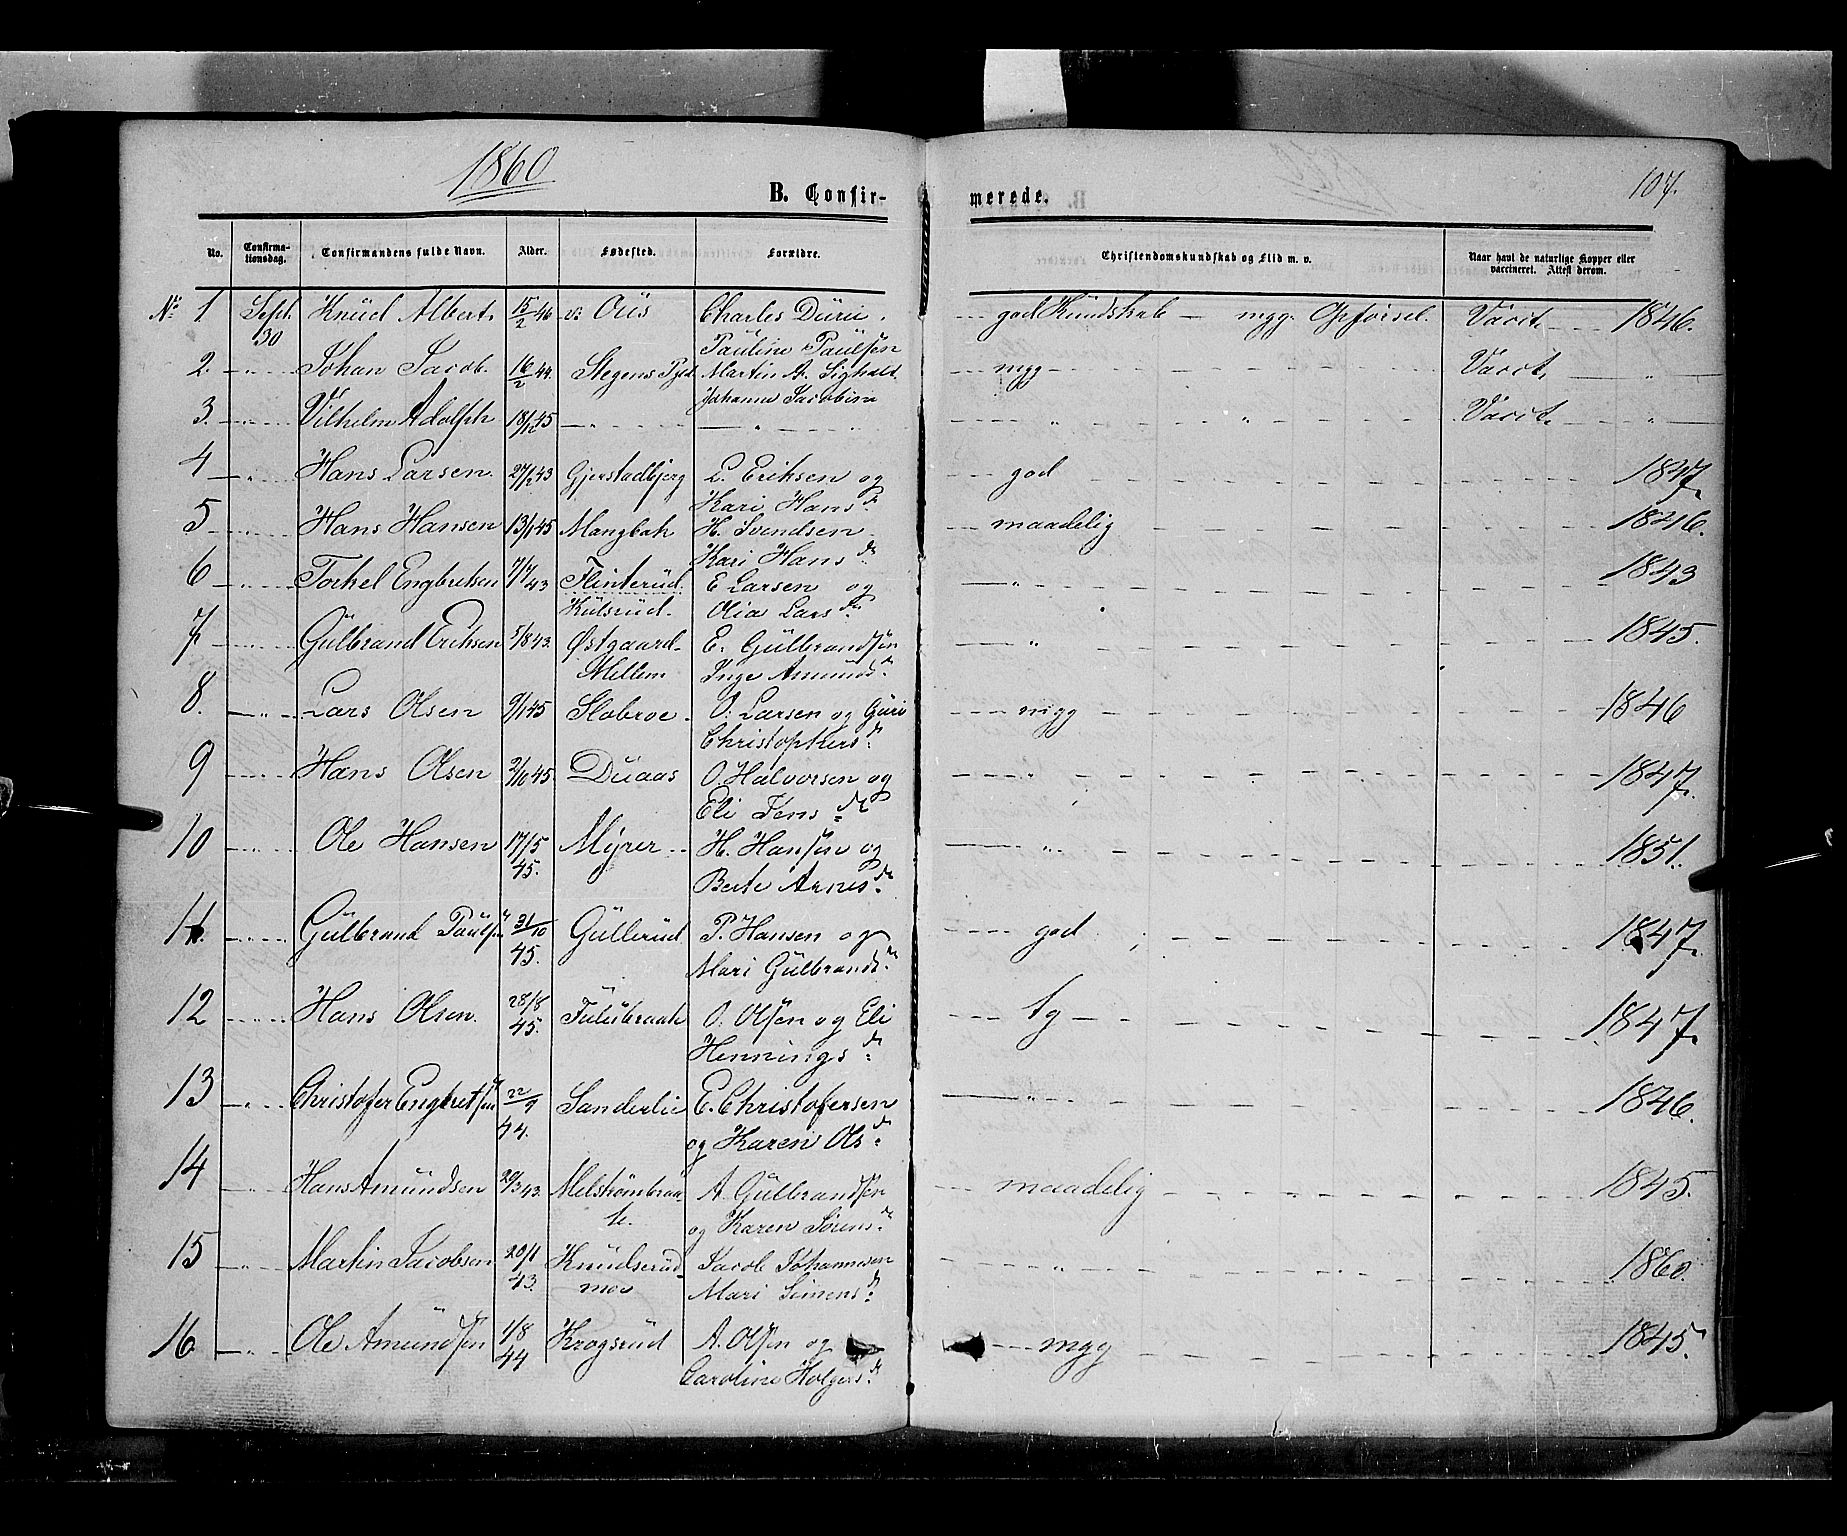 1860
B. Confir-
merede.
107.
No. Confirma-tionsdag. Confirmandens fulde Navn. Alder. Fødested. Forældre. Christendomskundskab og Flid m. v. Naar havt de naturlige Kopper eller vaccineret. Attest derom.
No 1 Sept. 30 Knud Albert. 15/2 46 v: Ous Charles Durie. god Kundskab — mgg. Opførsel. Vacct. 1846.
Pauline Paulsen
2. " Johan Jacob. 16/2 44. Stegens Pgld Martin A. mgg Vacct. "
Johanna Jacobina
3. " Vilhelm Adolph 18/12 45 " " " " Vacct. "
4 " Hans Larsen. 27/12 43 Gjerstadbjerg L. Eriksen og god 1847.
Kari Hansdr
5 " Hans Hansen 13/1 45 Mangbak H. Svendsen maadelig 1846.
Kari Hansdr
6 " Torkel Engbretsen 7/7 43 Flinterud E Larsen og " 1843
Kulsrud. Olia Larsdr
7 " Gulbrand Eriksen 5/8 43. Østgaard- E. Gulbrandsen " 1845.
Mellem Inge Amundsdr
8. " Lars Olsen 9/1 45 Slobroe. O: Larsen og Guri mgg 1846
Christophersdr
9 " Hans Olsen 2/10 45 Duaas O. Halvorsen og " 1847.
Eli Jensdr
10 " Ole Hansen 17/5 45. Myrer H. Hansen og " 1851.
Berte Arnesdr
11. " Gulbrand Paulsen 31/10 45. Gullerud P. Hansen og god 1847.
Mari Gulbrandsdr
12 " Hans Olsen. 28/8 45. O: Olsen og Eli tg 1847.
Henningsdr
13 " Christofer Engbretsen 22/9 44. Sanderlie E. Christofersen " 1846.
og Karen Olsdr
14 " Hans Amundsen 29/3 43. Melstrømbraa- A. Gulbrandsen maadelig 1845.
te. og Karen Sørensdr
15 " Martin Jacobsen 20/1 43. Knudserud Jacob Johannesen " 1860.
moe Mari Simensdr
16 " Ole Amundsen 1/8 44 Krogsrud A. Olsen og mgg 1845.
Caroline Holgersdr